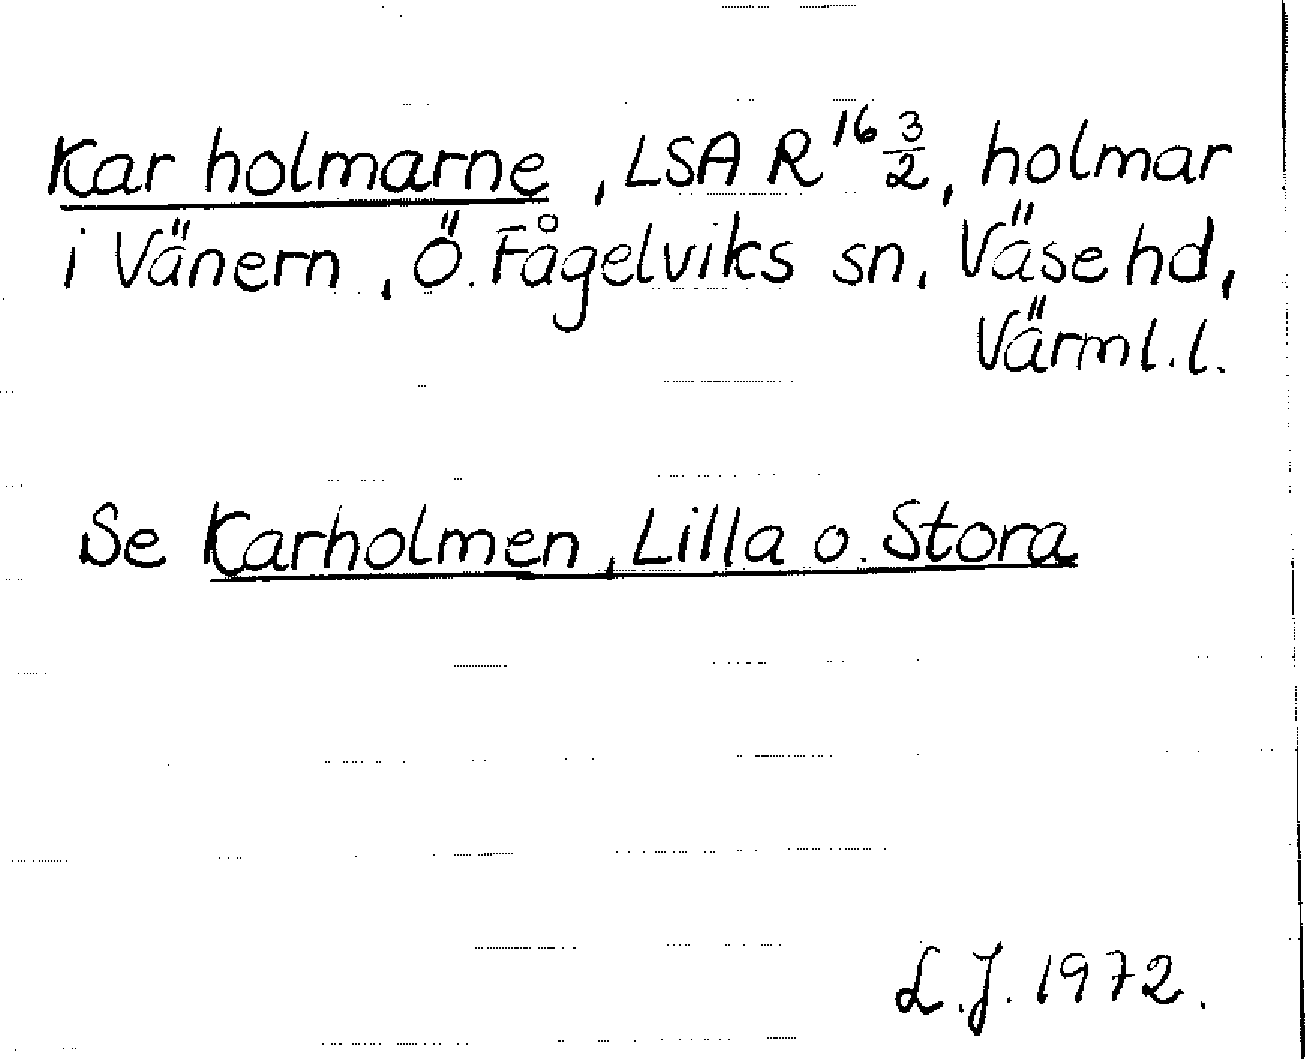 Kar holmarne, LSA R 16 3/2, holmar
i Vänern, Ö. Fågelviks sn, Väse hd,
Värml. l.
Se Karholmen, Lilla o. Stora
L.J. 1972.